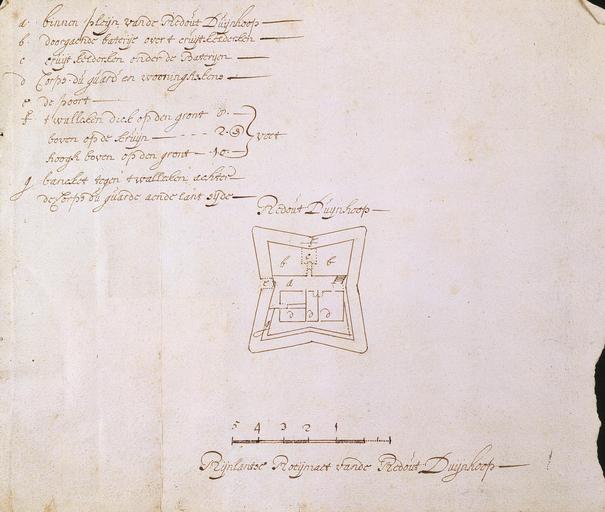 a binnen pleijn vande Redout Duijnhoop
b doorgaende baterije over t cruijtkelderken
c cruijt kelderken onder de Baterijen
d Corps du guard en wooninghskens
e de poort
f t walleken dick op den gront 8.
boven op de kruijn - - - - 2.
hoogh boven op den gront 10.
voet
g bancket tegen t walleken achter
de Corps du guarde aende lant sijde
Redout Duijnhoop
f
b c b
e a
d d d
g
5 4 3 2 1
Rijnlantse Roijmaet vande Redout Duijnhoop